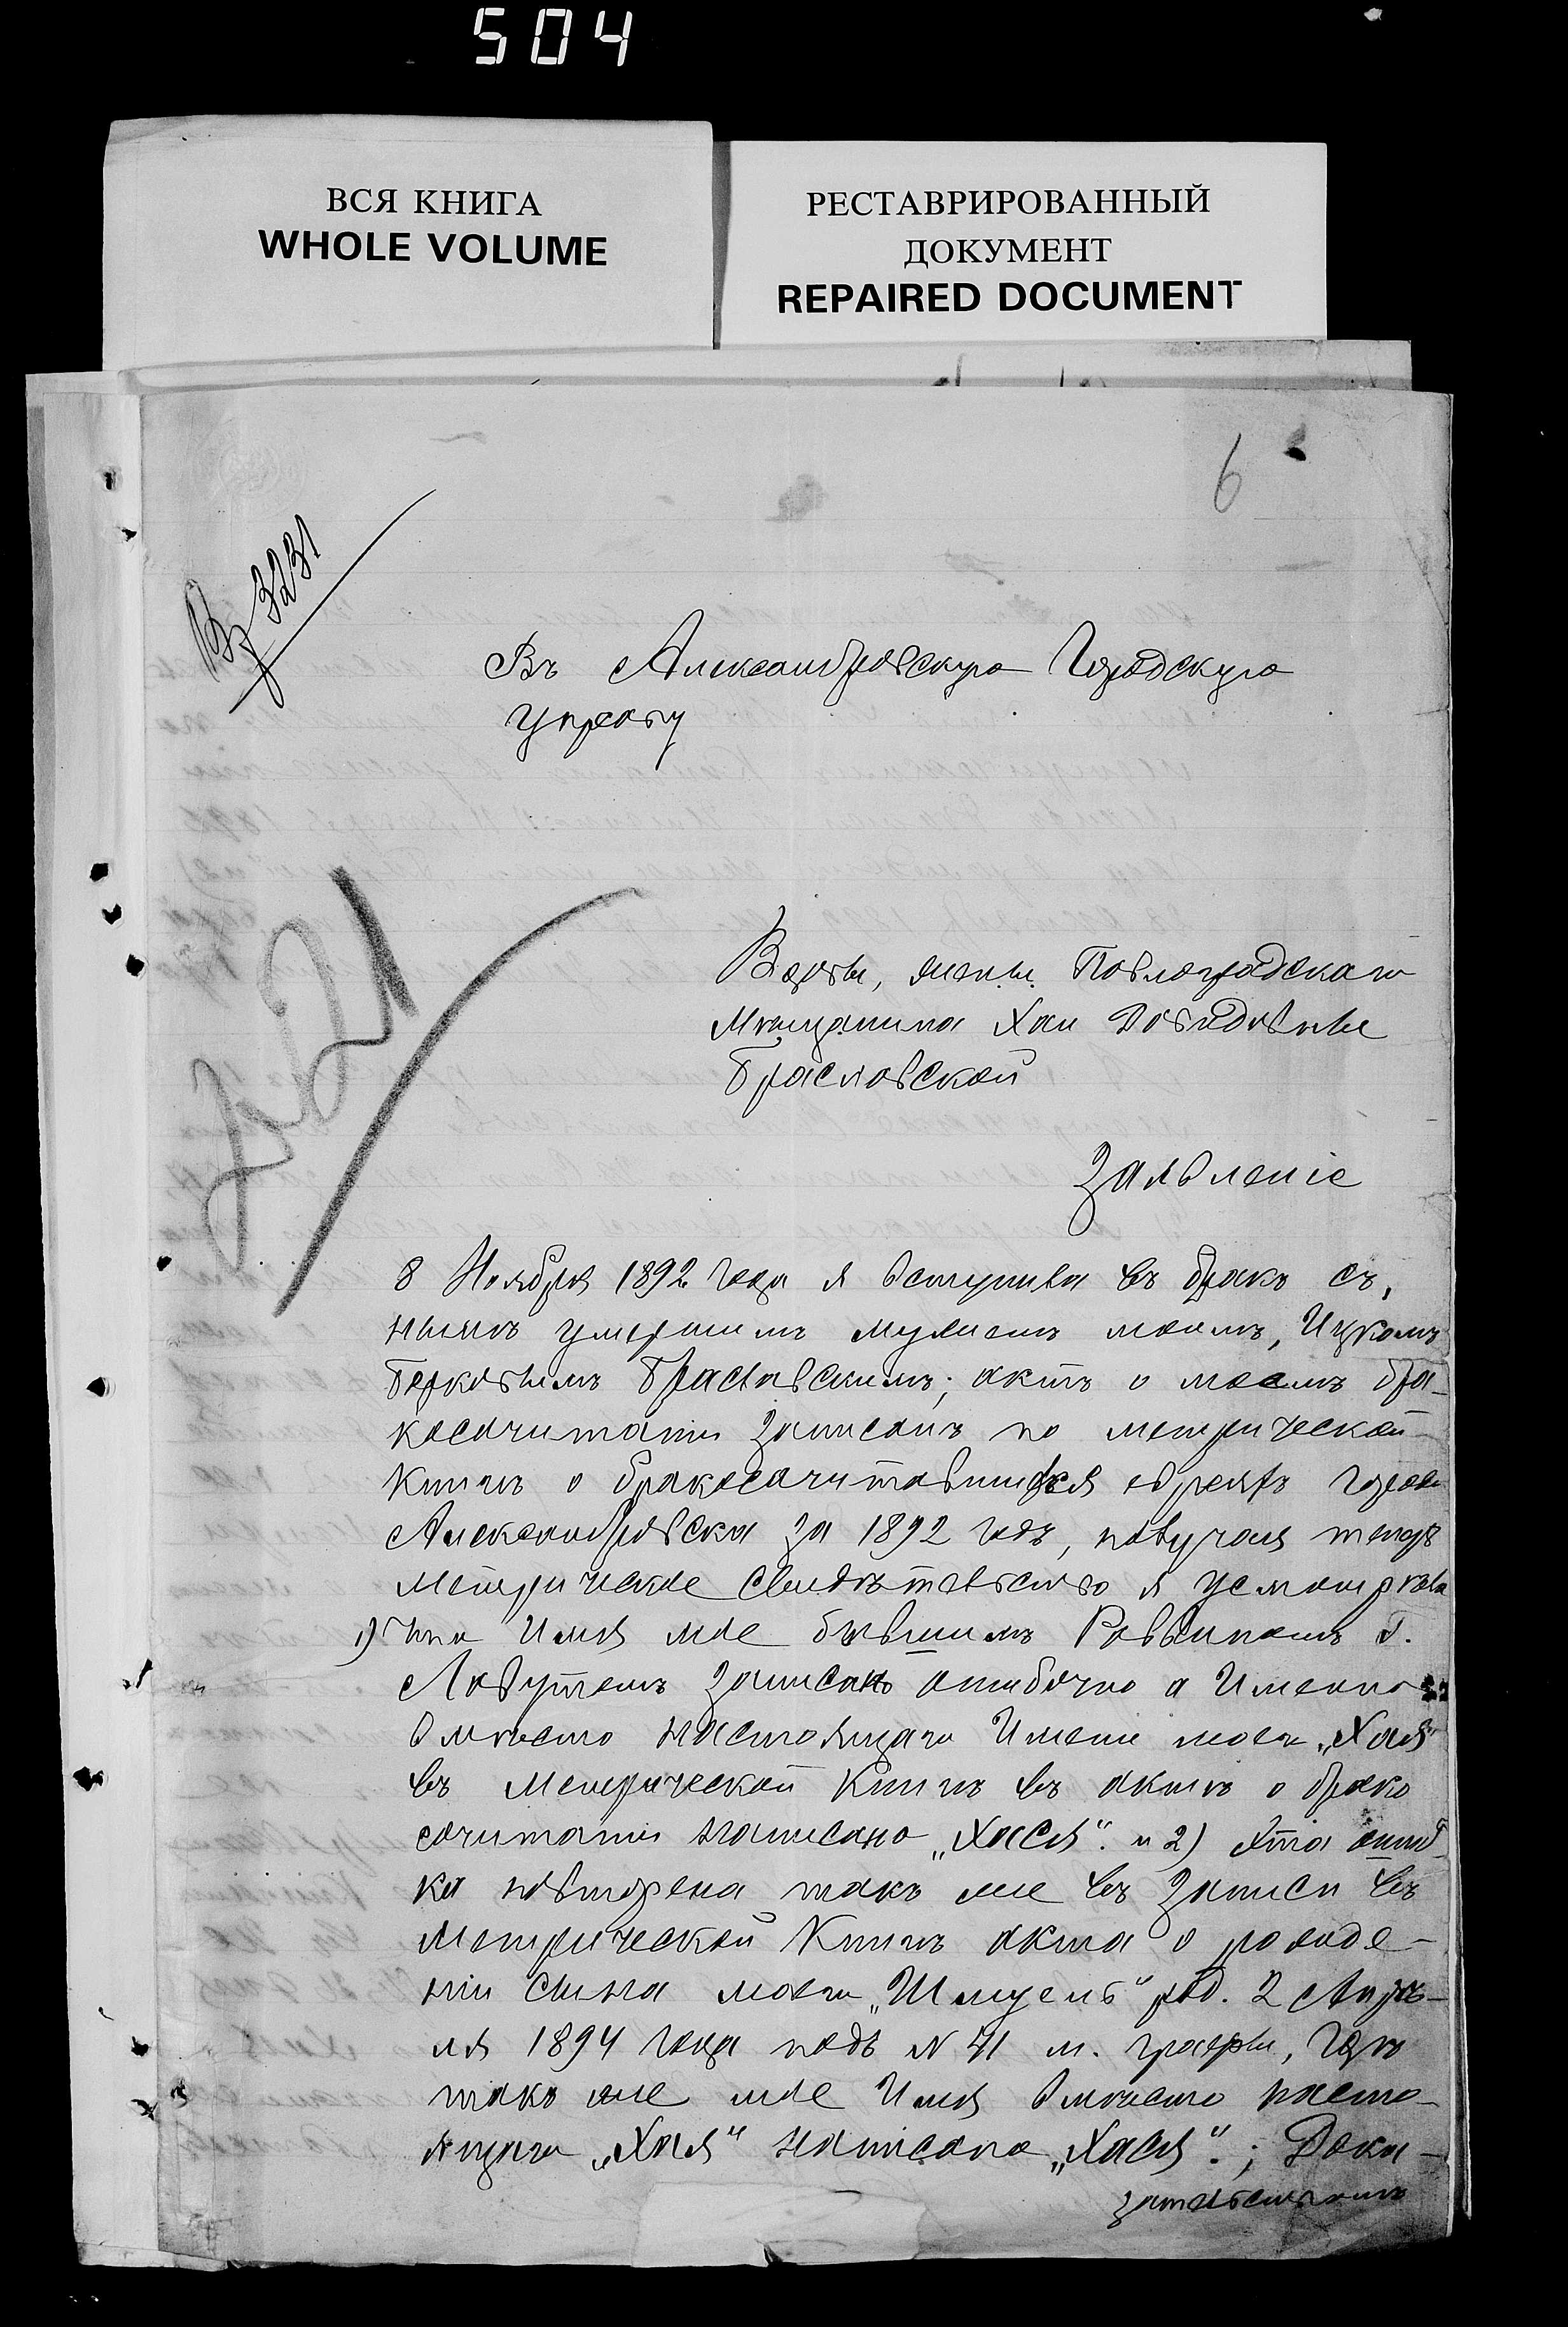 504
ВСЯ КНИГА
WHOLE VOLUME
РЕСТАВРИРОВАННЫЙ
ДОКУМЕНТ
REPAIRED DOCUMENT
6
Вх 3231
Въ Александровскую Городскую
Управу
№ 21
Вдовы, жены Павлоградскаго
Мѣщанина Хаи Давидовны
Браславской
Заявленіе
8 Ноября 1892 года я вступила въ бракъ съ,
нынѣ умершимъ мужемъ моимъ, Ицкомъ
Берковымъ Браславскимъ; актъ о моемъ бра-
косочитаніи записанъ по метрической
Книгѣ о бракосочитавшихся евреяхъ города
Александровска за 1892 годъ, получая теперь
Метрическое свидѣтельство я усмотрѣла
1) Что Имя мое бывшимъ Раввиномъ Г.
Записано ошибочно а Именно
вмѣсто настоящаго Имени моего „Хая"
въ Метрической Книгѣ въ актѣ о брако
сочитаніи написано „Хася". и 2) Эта ошиб
ка повторена такъ же въ записи въ
Метрической Книгѣ акта о рожде-
ніи сына моего „Шмуель" род. 2 Апрѣ-
ля 1894 года подъ N 41 м. графы, гдѣ
такъ же мое Имя вмѣсто насто-
ящаго „Хая" написано „Хася".; Дока-
зательствомъ